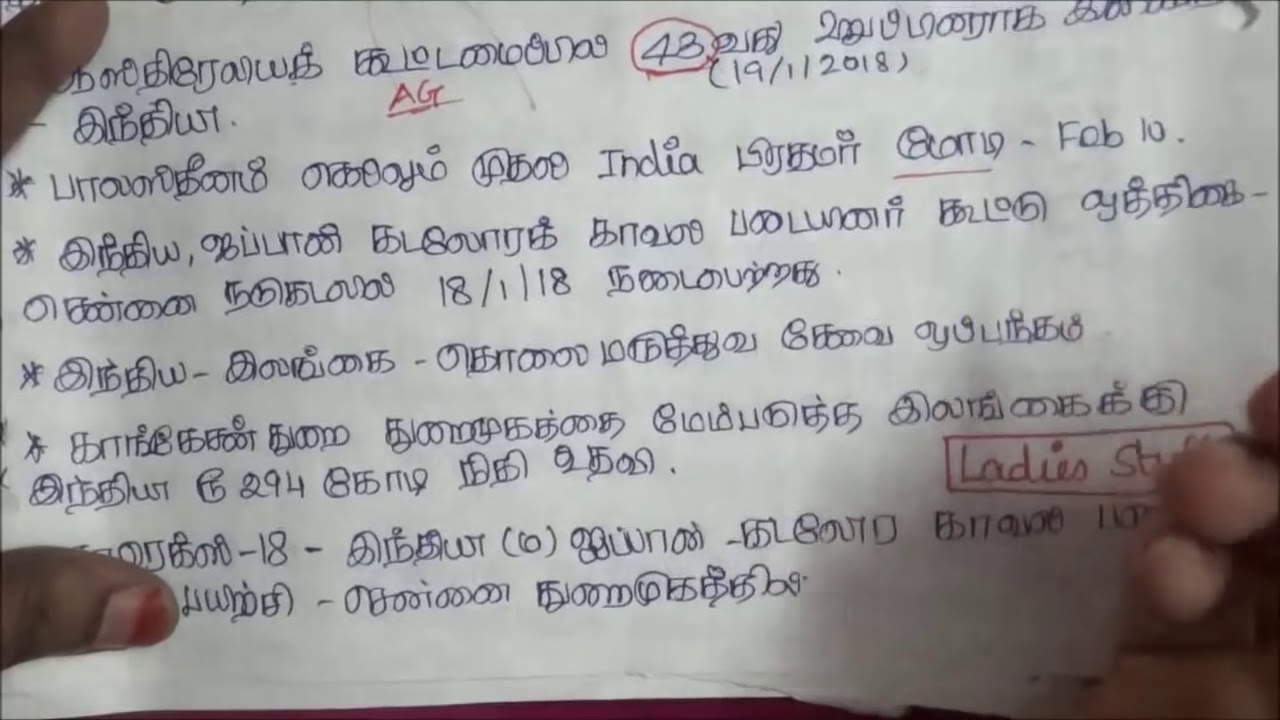 கூட்டமைப்பில் 43வது உறுப்பினராக
(19/1/2018)
AG
- இந்தியா.
* பாலஸ்தீனம் செல்லும் முதல் India பிரதமர் மோடி - Feb 10.
* இந்திய, ஜப்பான் கடலோரக் காவல் படையினர் கூட்டு ஒத்திகை -
சென்னை நடுகடலில் 18/1/18 நடைபெற்றது.
* இந்திய - இலங்கை - தொலை மருத்துவ சேவை ஒப்பந்தம்
* காங்கேசன் துறை துறைமுகத்தை மேம்படுத்த இலங்கைக்கு
இந்தியா ரூ 294 கோடி நிதி உதவி.
Ladies
-18 - இந்தியா (ம) ஜப்பான் - கடலோர காவல்
பயிற்சி - சென்னை துறைமுகத்தில்